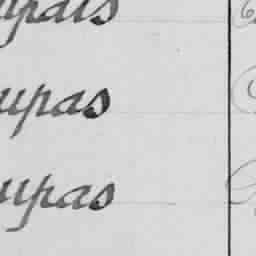 upais
upas
upas